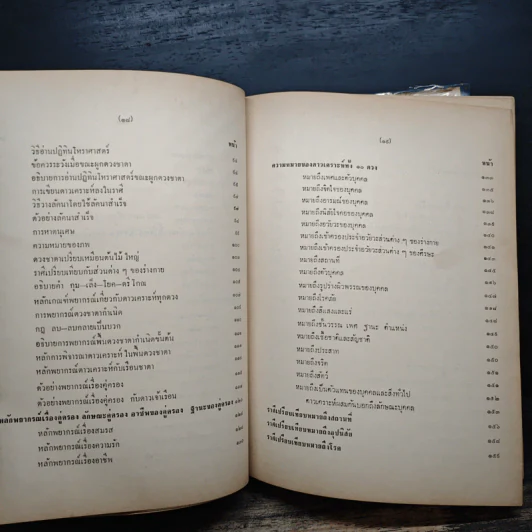 (๑๘)
หน้า
วิธีอ่านปฏิทินโหราศาสตร์
ข้อควรระวังเมื่อขณะผูกดวงชาตา
อธิบายการอ่านปฏิทินโหราศาสตร์ขณะผูกดวงชาตา
การเขียนดาวเคราะห์ลงในราศี
วิธีวางลัคนาโดยใช้ลัคนาสำเร็จ
ตัวอย่างลัคนาสำเร็จ
การหาตนุเศษ
ความหมายของภพ
ดวงชาตาเปรียบเหมือนต้นไม้ใหญ่
ราศีเปรียบเทียบกับส่วนต่าง ๆ ของร่างกาย
อธิบายคำ กุม—เล็ง—โยค—ตรีโกณ
หลักเกณฑ์พยากรณ์เกี่ยวกับดาวเคราะห์ทุกดวง
การพยากรณ์ดวงชาตากำเนิด
กฎ ลบ—ลบกลายเป็นบวก
อธิบายการพยากรณ์พื้นดวงชาตากำเนิดขั้นต้น
หลักการพิจารณาดาวเคราะห์ในพื้นดวงชาตา
หลักพยากรณ์ดาวเคราะห์กับเรือนชาตา
ตัวอย่างพยากรณ์เรื่องคู่ครอง
ตัวอย่างพยากรณ์เรื่องคู่ครอง กับดาวเจ้าเรือน
หลักพยากรณ์เรื่องคู่ครอง ลักษณะคู่ครอง อาชีพของคู่ครอง ฐานะของคู่ครอง
หลักพยากรณ์เรื่องสมรส
หลักพยากรณ์เรื่องความรัก
หลักพยากรณ์เรื่องอาชีพ
(๑๙)
หน้า
ความหมายของดาวเคราะห์ทั้ง ๑๐ ดวง
หมายถึงเพศและตัวบุคคล
หมายถึงจิตใจของบุคคล
หมายถึงอารมณ์ของบุคคล
หมายถึงนิสัยใจคอของบุคคล
หมายถึงอวัยวะของบุคคล
หมายถึงเจ้าครองประจำอวัยวะส่วนต่าง ๆ ของร่างกาย
หมายถึงเจ้าครองประจำอวัยวะส่วนต่าง ๆ ของศีรษะ
หมายถึงสถานที่
หมายถึงตัวบุคคล
หมายถึงรูปร่างผิวพรรณของบุคคล
หมายถึงโรคภัย
หมายถึงสีแสงและแร่
หมายถึงชั้นวรรณ เพศ ฐานะ ตำแหน่ง
หมายถึงเชื้อชาติและสัญชาติ
หมายถึงประสาท
หมายถึงจริต
หมายถึงสัตว์
หมายถึงเป็นตัวแทนของบุคคลและสิ่งทั่วไป
ดาวเคราะห์ผสมกันบอกถึงลักษณะบุคคล
ราศีเปรียบเทียบหมายถึงสถานที่
ราศีเปรียบเทียบหมายถึงอุปนิสัย
ราศีเปรียบเทียบหมายถึงโรค